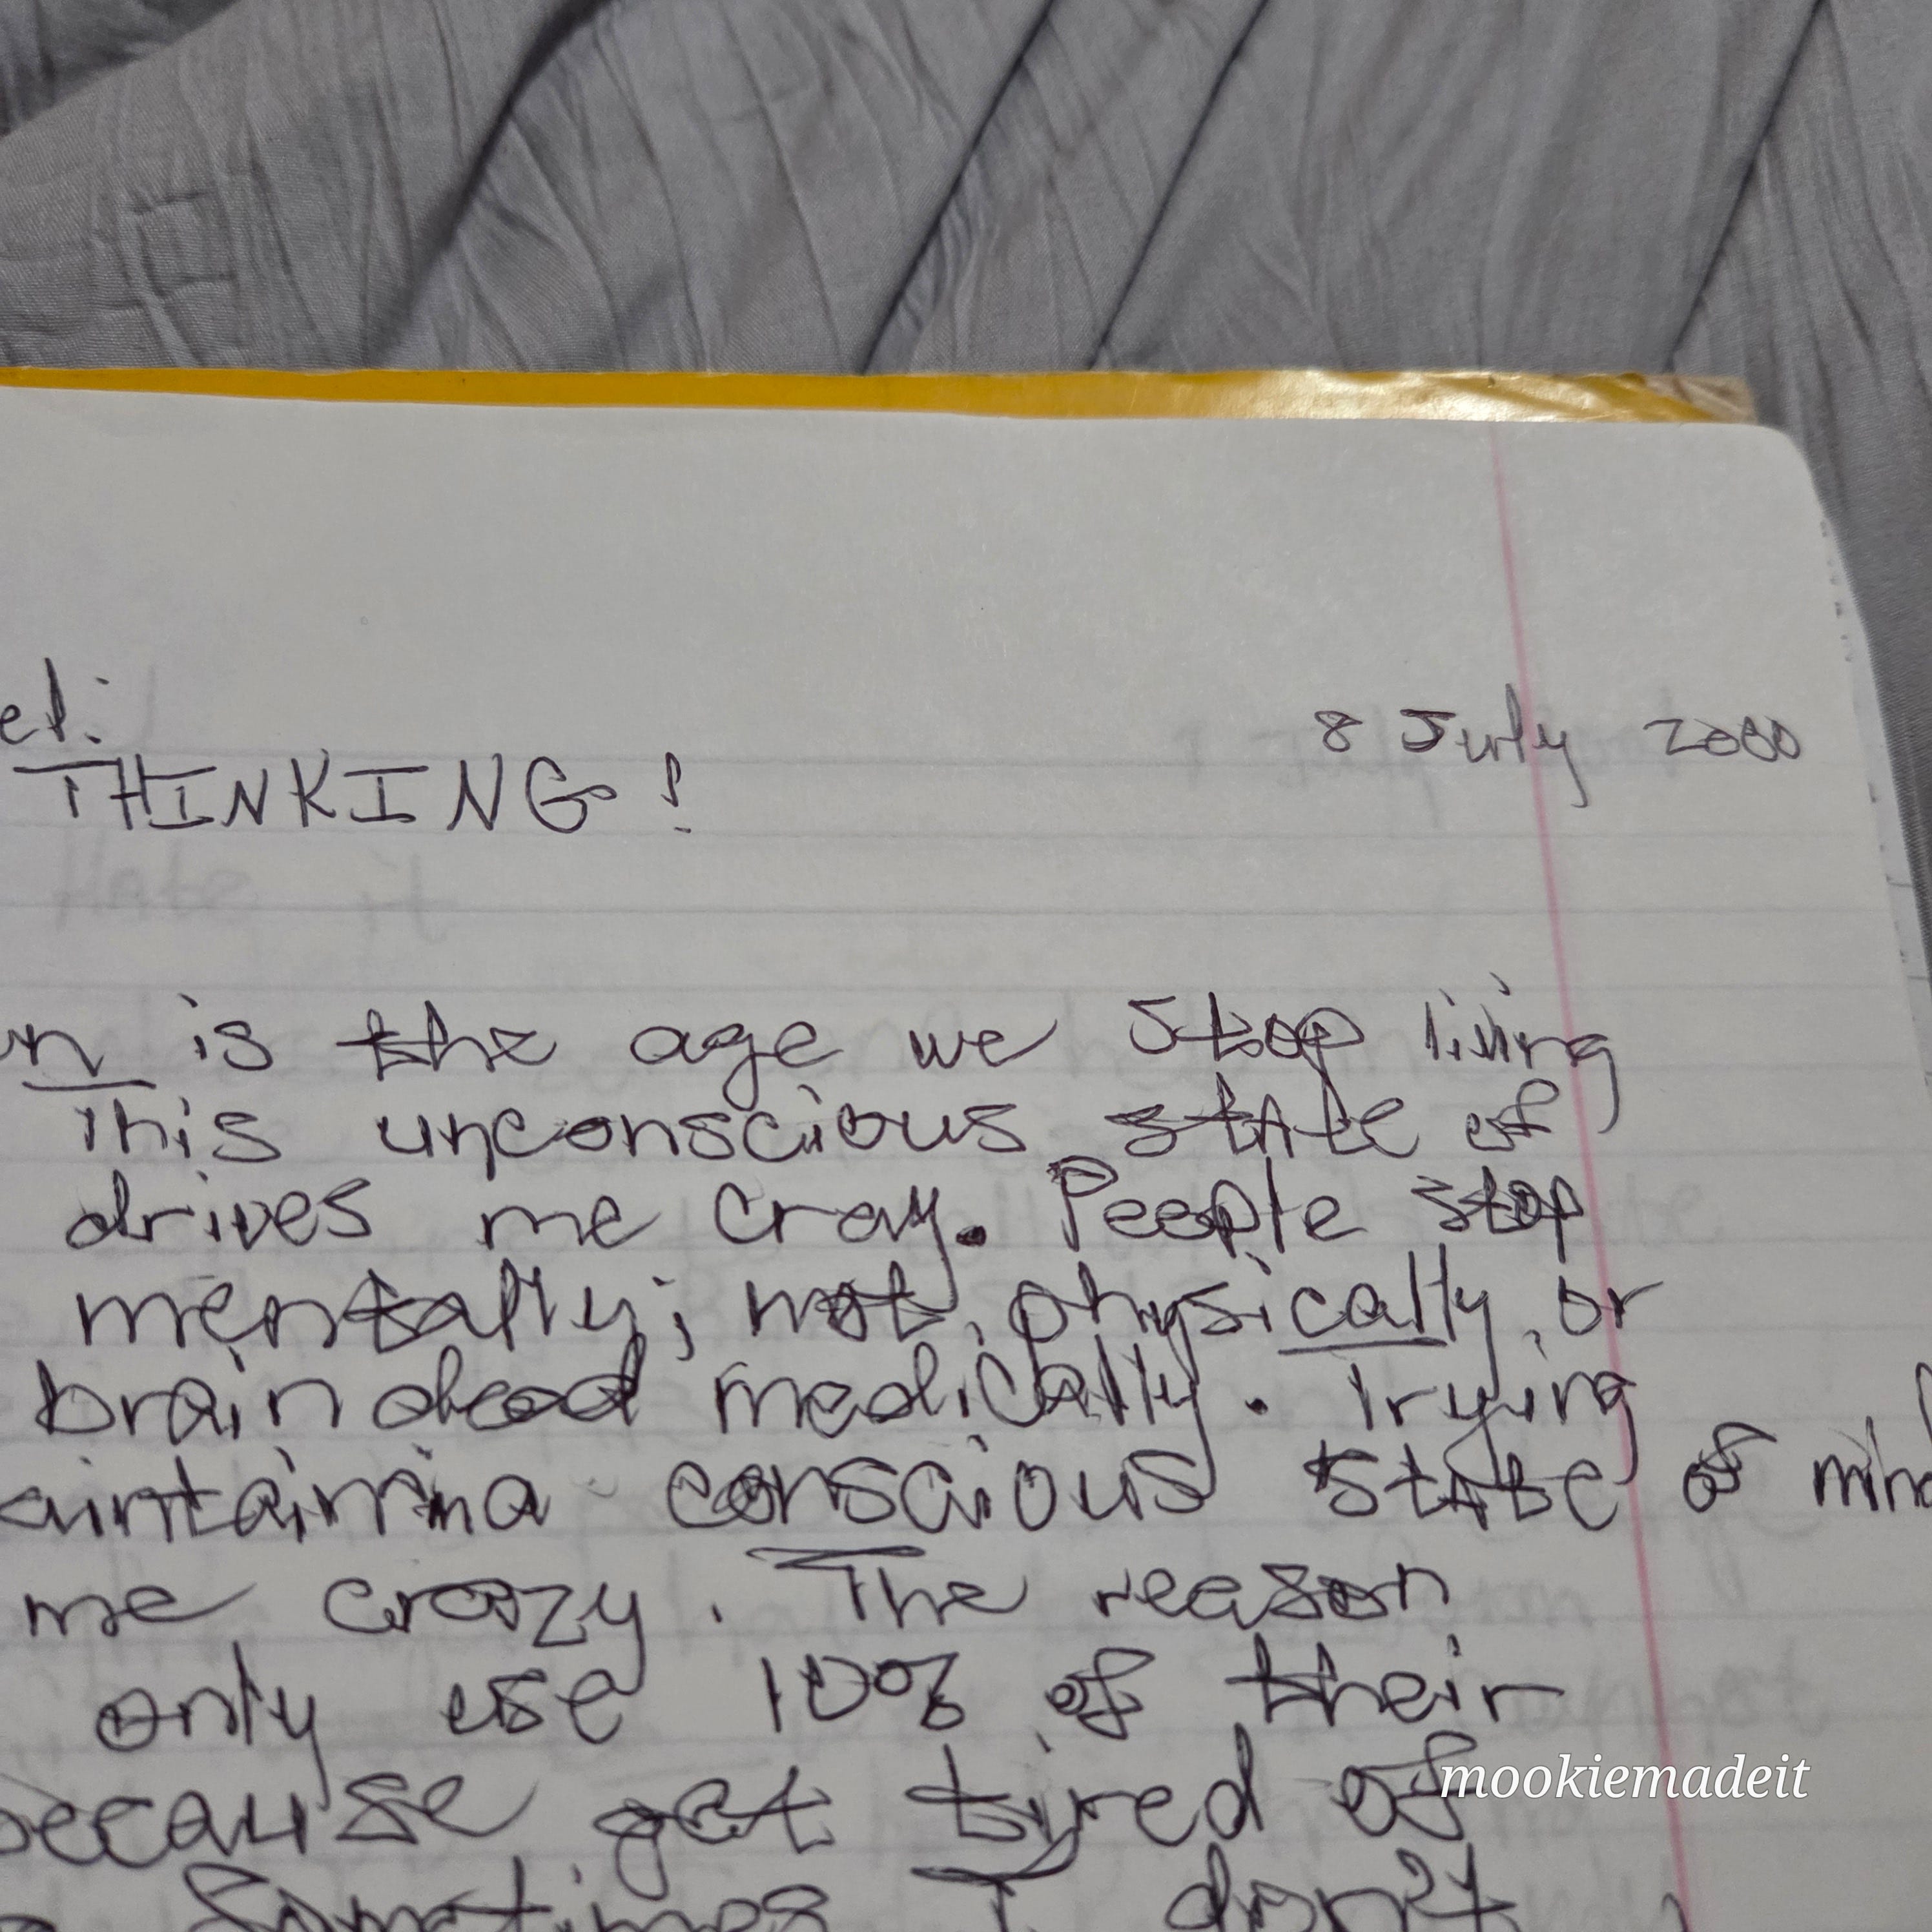 el:
8 July 2000
THINKING!
n is the age we stop living
This unconscious state of
drives me cray. People stop
mentally; not physically, or
brain dead medically. Trying
aintaining a conscious state of mind
me crazy. The reason
only use 10% of their
because get tired of
Sometimes I don't
mookiemadeit